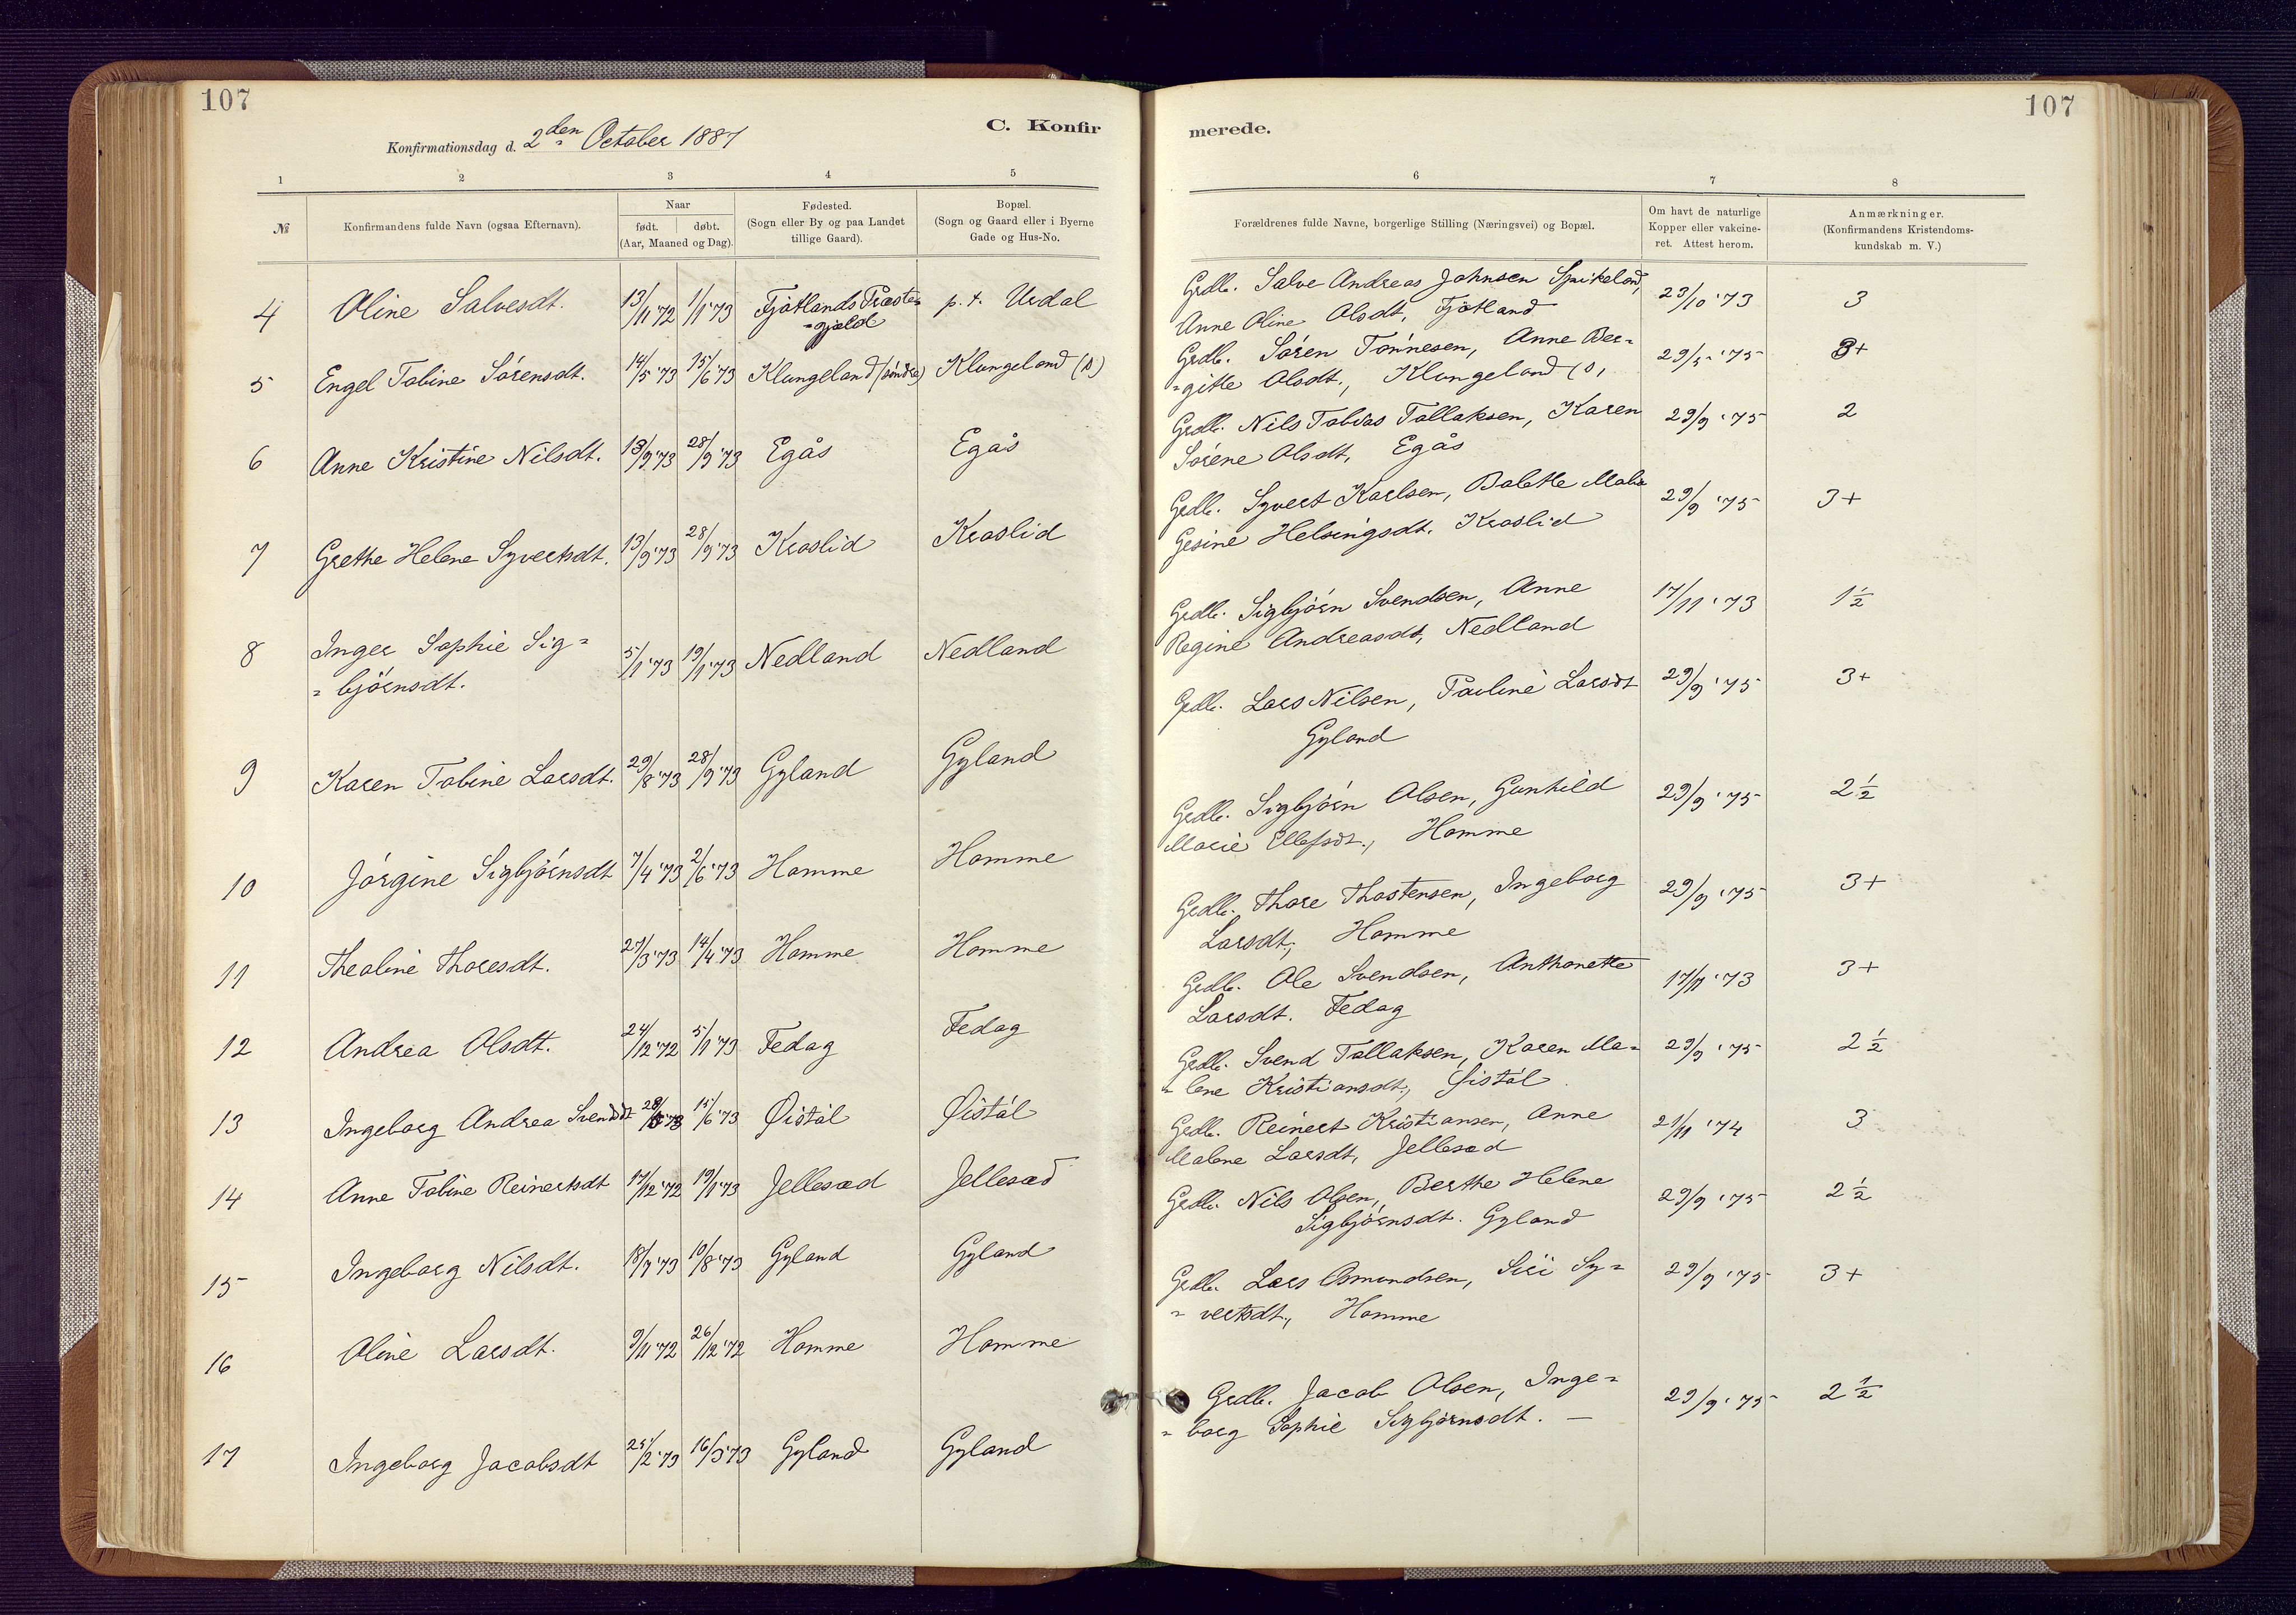 107
Konfirmationsdag d. 2den October 1887
C. Konfir
1 2 3 4 5
№ Konfirmandens fulde Navn (ogsaa Efternavn). Naar født. døbt. (Aar, Maaned og Dag). Fødested. (Sogn eller By og paa Landet tillige Gaard). Bopæl. (Sogn og Gaard eller i Byerne Gade og Hus-No.
4 Oline Salvesdt. 13/11 '72 1/1 '73 Fjotlands Præste= p. t. Urdal
=gjæld
5 Engel Tobine Sørensdt. 14/5 '73 15/6 '73 Klungeland (søndre) Klungeland (s)
6 Anne Kristine Nilsdt. 13/9 '73 28/9 '73 Egås Egås
7 Grethe Helene Syvertsdt. 13/9 '73 28/9 '73 Kroslid Kroslid
8 Inger Sophie Sig= 5/1 '73 19/1 '73 Nedland Nedland
= bjørnsdt.
9 Karen Tobine Larsdt. 29/8 '73 28/9 '73 Gyland Gyland
10 Jørgine Sigbjørnsdt 7/4 '73 2/6 '73 Homme Homme
11 Thealine Thoresdt. 27/3 '73 14/4 '73 Homme Homme
12 Andrea Olsdt. 24/12 '72 5/1 '73 Fedag Fedag
13 Ingeborg Andrea Svendsdt 15/6 '73 Øistøl Øistøl
14 Anne Tobine Reinertsdt 17/12 '72 19/1 '73 Jellesæd Jellesæd
15 Ingeborg Nilsdt. 18/7 '73 10/8 '73 Gyland Gyland
16 Oline Larsdt. 9/11 '72 26/12 '72 Homme Homme
17 Ingeborg Jacobsdt 25/2 '73 16/3 '73 Gyland Gyland
107
merede.
6 7 8
Forældrenes fulde Navne, borgerlige Stilling (Næringsvei) og Bopæl. Om havt de naturlige Kopper eller vakcine-ret. Attest herom. Anmærkninger. (Konfirmandens Kristendoms-kundskab m. V.)
Grdb. Salve Andreas Johnsen Spikeland, 23/10 '73 3
Anne Oline Olsdt, Fjotland
Grdb. Søren Tønnesen, Anne Ber= 29/5 '75 3+
=gitte Olsdt., Klungeland (s,
Grdb. Nils Tobias Tallaksen, Karen 29/9 '75 2
Sørene Olsdt, Egås
Grdb. Syvert Karlsen, Bolette Malie 29/9 '75 3+
Gesine Helsingsdt. Kroslid
Grdb. Sigbjørn Svendsen, Anne 17/11 '73 1½
Regine Andreasdt, Nedland
Grdb. Lars Nilsen, Pauline Larsdt 29/9 '75 3+
Gyland
Grdb. Sigbjørn Olsen, Gunhild 29/9 '75 2½
Marie Ellefsdt., Homme
Grdb. Thore Thostensen, Ingeborg 29/9 '75 3+
Larsdt., Homme
Grdb. Ole Svendsen, Anthonette 17/11 '73 3+
Larsdt. Fedag
Grdb. Svend Tallaksen, Karen Ma= 29/9 '75 2½
= lene Kristiansdt., Øistøl
Grdb. Reinert Kristiansen, Anne 21/11 '74 3
Malene Larsdt, Jellesæd
Grdb. Nils Olsen, Berthe Helene 29/9 '75 2½
Sigbjørnsdt. Gyland
Grdb. Lars Osmundsen, Siri Sy= 29/9 '75 3+
= vertsdt., Homme
Grdb. Jacob Olsen, Inge= 29/9 '75 2½
= borg Sophie Sigbjørnsdt. —